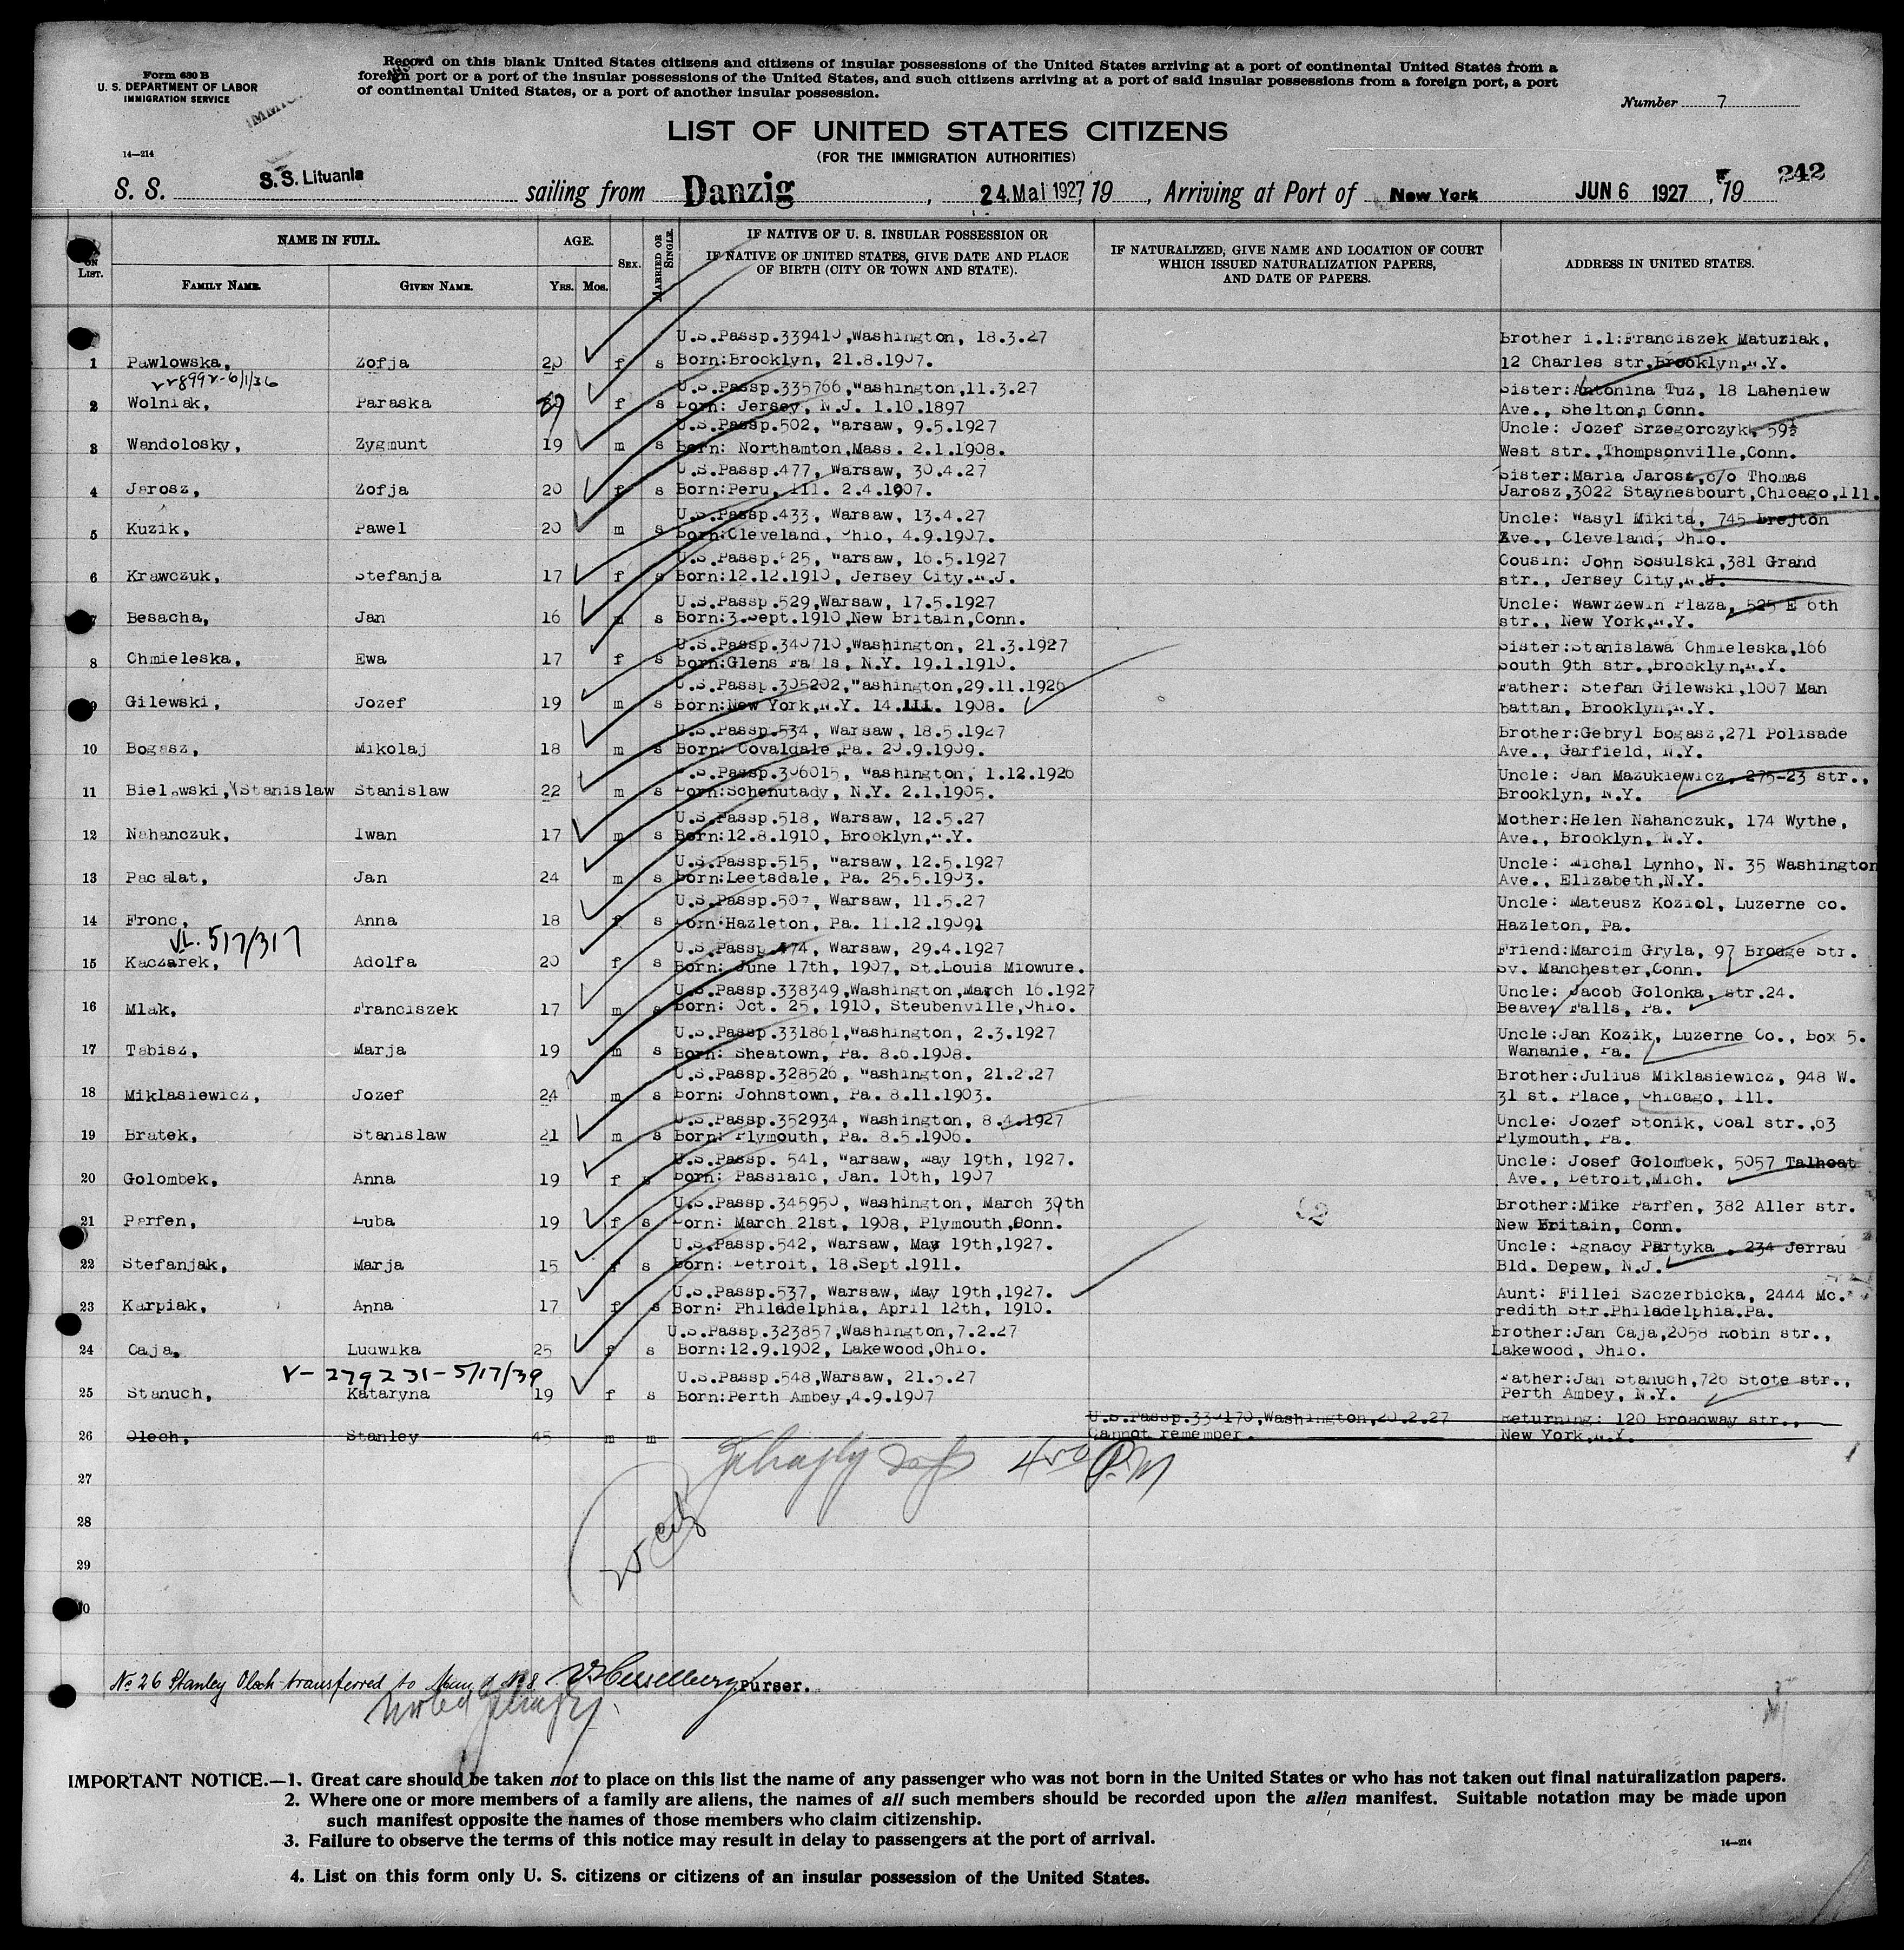 Form 630 B
U. S. DEPARTMENT OF LABOR
IMMIGRATION SERVICE
14—214
Record on this blank United States citizens and citizens of insular possessions of the United States arriving at a port of continental United States from a
foreign port or a port of the insular possessions of the United States, and such citizens arriving at a port of said insular possessions from a foreign port, a port
of continental United States, or a port of another insular possession.
Number 7
LIST OF UNITED STATES CITIZENS
(FOR THE IMMIGRATION AUTHORITIES)
242
S. S. S.S. Lituania sailing from Danzig, 24. Mai 1927, 19 , Arriving at Port of New York JUN 6 1927, 19
ON LIST.
NAME IN FULL.
FAMILY NAME. GIVEN NAME.
AGE.
YRS. MOS.
SEX.
MARRIED OR SINGLE.
IF NATIVE OF U. S. INSULAR POSSESSION OR
IF NATIVE OF UNITED STATES, GIVE DATE AND PLACE
OF BIRTH (CITY OR TOWN AND STATE).
IF NATURALIZED, GIVE NAME AND LOCATION OF COURT
WHICH ISSUED NATURALIZATION PAPERS,
AND DATE OF PAPERS.
ADDRESS IN UNITED STATES.
U.S.Passp.339410,Washington, 18.3.27 Brother i.l:Franciszek Matuziak,
1 Pawlowska, Zofja 20 f s Born:Brooklyn, 21.8.1907. 12 Charles str.Brooklyn,N.Y.
U.S.Passp.335766,Washington,11.3.27 Sister:Antonina Tuz, 18 Laheniew
2 Wolniak, Paraska 29 f s Born: Jersey, N.J. 1.10.1897 Ave., Shelton, Conn.
U.S.Passp.502, Warsaw, 9.5.1927 Uncle: Jozef Srzegorczyk, 59½
3 Wandolosky, Zygmunt 19 m s Born: Northamton,Mass. 2.1.1908. West str.,Thompsonville,Conn.
U.S.Passp.477, Warsaw, 30.4.27 Sister:Maria Jarosz,c/o Thomas
4 Jarosz, Zofja 20 f s Born:Peru, Ill. 2.4.1907. Jarosz,3022 Staynesbourt,Chicago,Ill.
U.S.Passp.433, Warsaw, 13.4.27 Uncle: Wasyl Mikita, 745 Brejton
5 Kuzik, Pawel 20 m s Born:Cleveland, Ohio, 4.9.1907. Ave., Cleveland, Ohio.
U.S.Passp.525, Warsaw, 16.5.1927 Cousin: John Sosulski,381 Grand
6 Krawczuk, Stefanja 17 f s Born:12.12.1910, Jersey City.N.J. str., Jersey City,N.J.
U.S.Passp.529,Warsaw, 17.5.1927 Uncle: Wawrzewin Plaza, 525 E 6th
7 Besacha, Jan 16 m s Born:3.Sept.1910,New Britain,Conn. str., New York,N.Y.
U.S.Passp.340710,Washington, 21.3.1927 Sister:Stanislawa Chmieleska,166
8 Chmieleska, Ewa 17 f s Born:Glens Falls, N.Y. 19.1.1910. South 9th str.,Brooklyn,N.Y.
U.S.Passp.305202,Washington,29.11.1926 Father: Stefan Gilewski,1007 Man
9 Gilewski, Jozef 19 m s Born:New York,N.Y. 14.III. 1908. battan, Brooklyn,N.Y.
U.S.Passp.534, Warsaw, 18.5.1927 Brother:Gebryl Bogasz,271 Polisade
10 Bogasz, Mikolaj 18 m s Born: Covaldale,Pa. 20.9.1909. Ave., Garfield, N.Y.
U.S.Passp.306015, Washington, 1.12.1926 Uncle: Jan Mazukiewicz, 275-23 str.,
11 Bielawski, Stanislaw Stanislaw 22 m s Born:Schenutady, N.Y. 2.1.1905. Brooklyn, N.Y.
U.S.Passp.518, Warsaw, 12.5.27 Mother:Helen Nahanczuk, 174 Wythe,
12 Nahanczuk, Iwan 17 m s Born:12.8.1910, Brooklyn,N.Y. Ave., Brooklyn, N.Y.
U.S.Passp.515, Warsaw, 12.5.1927 Uncle: Michal Lynho, N. 35 Washington
13 Pacalat, Jan 24 m s Born:Leetsdale, Pa. 25.5.1903. Ave., Elizabeth,N.Y.
U.S.Passp.507, Warsaw, 11.5.27 Uncle: Mateusz Koziol, Luzerne co.
14 Fronc, Anna 18 f s Born:Hazleton, Pa. 11.12.1909 Hazleton, Pa.
VL. 517/317
U.S.Passp.474, Warsaw, 29.4.1927 Friend:Marcim Gryla, 97 Brodge Str.
15 Kaczarek, Adolfa 20 f s Born: June 17th, 1907, St.Louis Miowure. Sv. Manchester,Conn.
U.S.Passp.338349,Washington,March 16.1927 Uncle: Jacob Golonka, str.24.
16 Mlak, Franciszek 17 m s Born: Oct. 25, 1910, Steubenville,Ohio. Beaver Falls, Pa.
U.S.Passp.331861,Washington, 2.3.1927 Uncle:Jan Kozik, Luzerne Co., Box 5.
17 Tabisz, Marja 19 m s Born: Sheatown, Pa. 8.6.1908. Wananie, Pa.
U.S.Passp.328526, Washington, 21.2.27 Brother:Julius Miklasiewicz, 948 W.
18 Miklasiewicz, Jozef 24 m s Born: Johnstown, Pa. 8.11.1903. 31 st. Place, Chicago, Ill.
U.S.Passp.352934, Washington, 8.4.1927 Uncle: Jozef Stonik, Coal str.,63
19 Bratek, Stanislaw 21 m s Born: Plymouth, Pa. 8.5.1906. Plymouth, Pa.
U.S.Passp. 541, Warsaw, May 19th, 1927. Uncle: Josef Golombek, 5057 Talhoat
20 Golombek, Anna 19 f s Born: Passiaic, Jan. 10th, 1907 Ave., Detroit,Mich.
U.S.Passp.345950, Washington, March 30th Brother:Mike Parfen, 382 Aller str.
21 Parfen, Luba 19 f s Born: March 21st, 1908, Plymouth,Conn. New Britain, Conn.
U.S.Passp.542, Warsaw, May 19th,1927. Uncle: Ignacy Partyka, 234 Jerrau
22 Stefanjak, Marja 15 f s Born: Detroit, 18.Sept.1911. Bld. Depew, N.J.
U.S.Passp.537, Warsaw, May 19th,1927. Aunt: Fillei Szczerbicka, 2444 Mc.
23 Karpiak, Anna 17 f s Born: Philadelphia, April 12th, 1910. redith Str.Philadelphia.Pa.
U.S.Passp.323857,Washington,7.2.27 Brother:Jan Caja,2058 Robin str.,
24 Caja, Ludwika 25 f s Born:12.9.1902, Lakewood,Ohio. Lakewood, Ohio.
V-279231-5/17/39
U.S.Passp.548,Warsaw, 21.5.27 Father:Jan Stanuch,726 Stote str.,
25 Stanuch, Kataryna 19 f s Born:Perth Ambey,4.9.1907 Perth Ambey, N.Y.
U.S.Passp.330170,Washington,20.2.27 Returning: 120 Broadway str.,
26 Olech, Stanley 45 m m Cannot remember. New York,N.Y.
27
28
29
30
No 26 Stanley Olech transferred to No 8 Purser.
IMPORTANT NOTICE.—1. Great care should be taken not to place on this list the name of any passenger who was not born in the United States or who has not taken out final naturalization papers.
2. Where one or more members of a family are aliens, the names of all such members should be recorded upon the alien manifest. Suitable notation may be made upon
such manifest opposite the names of those members who claim citizenship.
3. Failure to observe the terms of this notice may result in delay to passengers at the port of arrival.
14—214
4. List on this form only U. S. citizens or citizens of an insular possession of the United States.